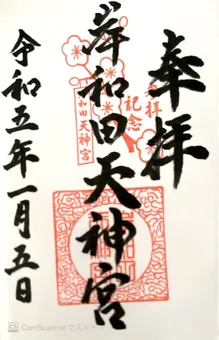 奉拝
岸和田天神宮
令和五年一月五日
参拝
記念
岸和田天神宮
CamScanner でスキャン